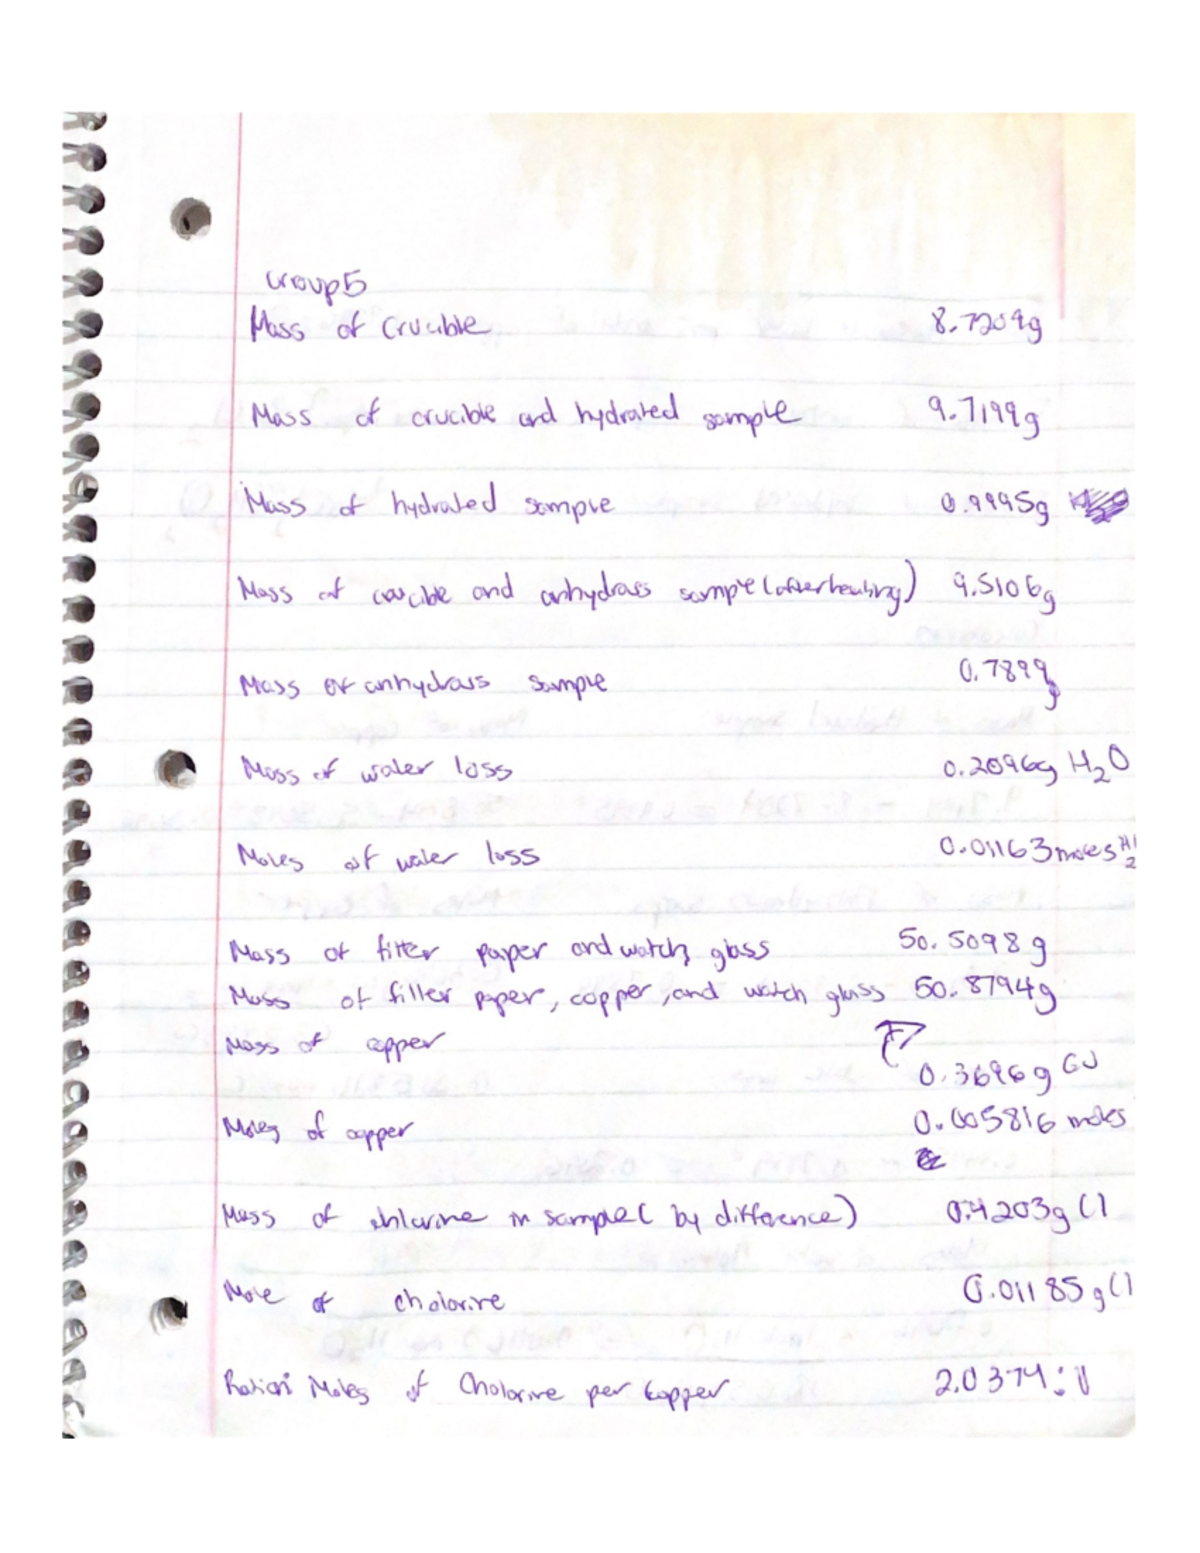 Group 5
Mass of Crucible 8.7204g
Mass of crucible and hydrated sample 9.7199g
Mass of hydrated sample 0.9995g
Mass of crucible and anhydrass sample (after heating) 9.5106g
Mass of anhydrass sample 0.7899g
Mass of water loss 0.2096g H₂O
Moles of water loss 0.01163 moles H₂
Mass of filter paper and watch glass 50.5098 g
Mass of filter paper, copper, and watch glass 50.8794g
Mass of copper
0.3696g CU
Moles of copper 0.005816 moles
Mass of chlorine in sample (by difference) 0.4203g Cl
Mole of cholorine 0.01185 g Cl
Moles of Cholorine per Copper 2.0374:1